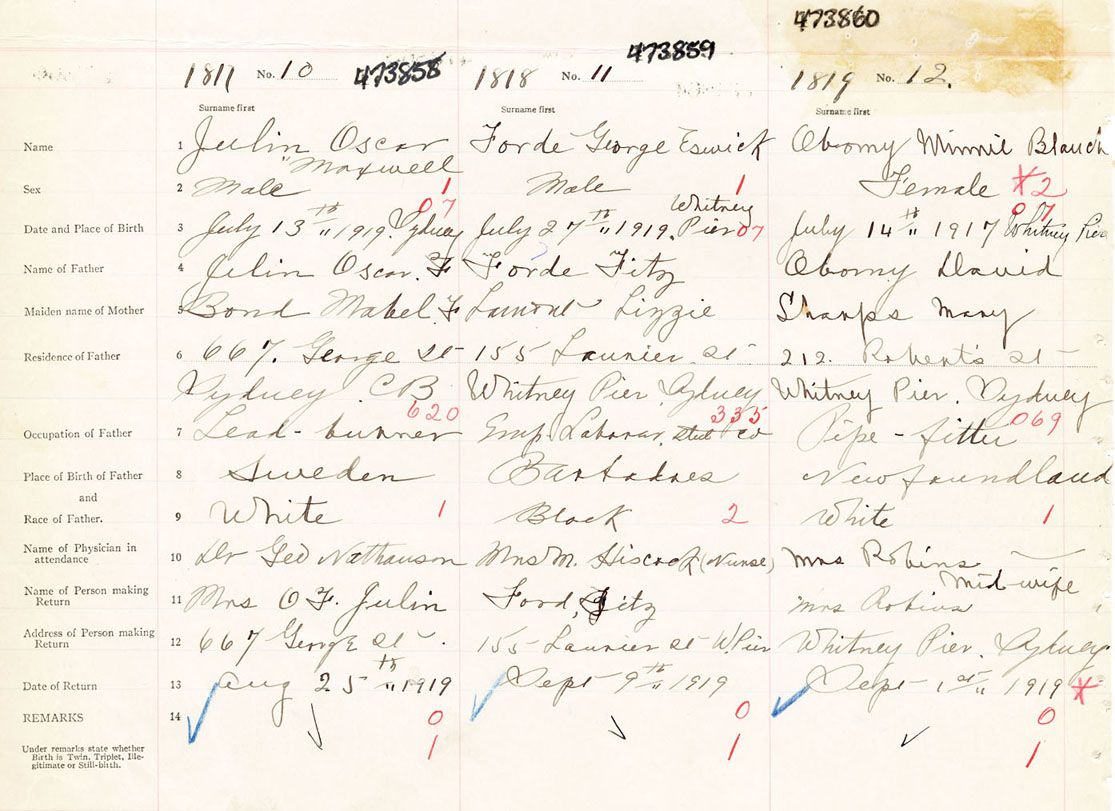 473860
473859
473858
1817 No. 10
1818 No. 11
1819 No. 12.
Surname first
Surname first
Surname first
Name 1 Julin Oscar Forde George Eswick Obomy Minnie Blanch
"Maxwell
Sex 2 Male 1 Male 1 Female X2
07 Whitney 07
Date and Place of Birth 3 July 13th " 1919. Sydney July 27th " 1919. Pier 07 July 14th " 1917 Whitney Pier
Name of Father 4 Julin Oscar. F Forde Fitz Obomy David
Maiden name of Mother 5 Bond Mabel. F Lamont Lizzie Sharps Mary
Residence of Father 6 667. George St 155 Laurier St 212. Robert's St
Sydney C.B. Whitney Pier Sydney Whitney Pier. Sydney
620 335 069
Occupation of Father 7 Lead-burner Emp. Laborar, Steel Co Pipe-fitter
Place of Birth of Father 8 Sweden Barbadoes Newfoundland
and
Race of Father. 9 White 1 Black 2 White 1
Name of Physician in
attendance 10 Dr Geo Nathanson Mrs M. Hiscock (Nurse) Mrs Robins
Mid-wife
Name of Person making
Return 11 Mrs O F. Julin Ford, Fitz Mrs Robins "
Address of Person making
Return 12 667 George St. 155 Laurier St W. Pier Whitney Pier. Sydney
Date of Return 13 Aug 25th " 1919 Sept 9th " 1919 Sept 1st " 1919 X
REMARKS 14 0 0 0
Under remarks state whether
Birth is Twin. Triplet, Ille-
gitimate or Still-birth.
1 1 1